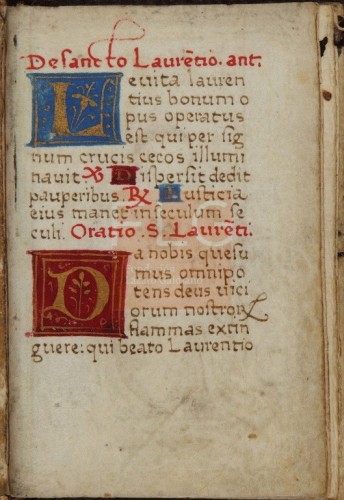 De sancto Laurētio. ant.
Levita lauren
tius bonum o
pus operatus
est qui per sig
num crucis cecos illumi
nauit ℣ Dispersit dedit
pauperibus. ℟ Iusticia
eius manet in seculum se
culi. Oratio. S. Laurēti.
Da nobis quesu
mus omnipo
tens deus uici
orum nostroꝝ
flammas extin
guere: qui beato Laurentio